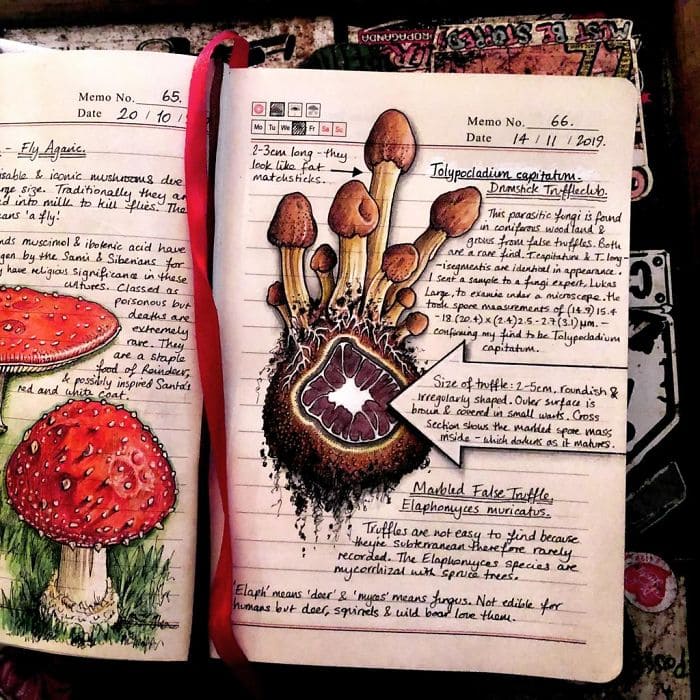 Memo No. 65.
Date 20/10/
- Fly Agaric.
isable & iconic mushrooms due
rge size. Traditionally they are
d into milk to kill flies. The
eans 'a fly!
nds muscimol & ibotenic acid have
gen by the Sami & Siberians for
y have religious significance in these
cultures. Classed as
poisonous but
deaths are
extremely
rare. They
are a staple
food of Reindeer,
& possibly inspired Santa's
red and white coat.
Memo No. 66.
Date 14/11/2019.
Mo Tu We Fr Sa Su
2-3cm long - they
look like fat
matchsticks.
Tolypocladium capitatum.
Drumstick Truffleclub.
This parasitic fungi is found
in coniferous woodland &
grows from false truffles. Both
are a rare find. T.capitatum & T. long
-isegmentis are identical in appearance.
I sent a sample to a fungi expert, Lukas
Large, to examine under a microscope. He
took spore measurements of (14.9) 15.4
-18 (20.4) x (2.4) 2.5 - 2.7 (3.1) µm. -
confirming my find to be Tolypocladium
capitatum.
Size of truffle: 2-5cm, roundish &
irregularly shaped. Outer surface is
brown & covered in small warts. Cross
Section shows the marbled spore mass
inside - which darkens as it matures.
Marbled False Truffle,
Elaphomyces muricatus.
Truffles are not easy to find because
they're subterranean therefore rarely
recorded. The Elaphomyces species are
mycorrhizal with spruce trees.
'Elaph' means 'deer' & 'myces' means fungus. Not edible for
humans but deer, squirrels & wild boar love them.
PROPAGANDA
MUST BE STOPPED